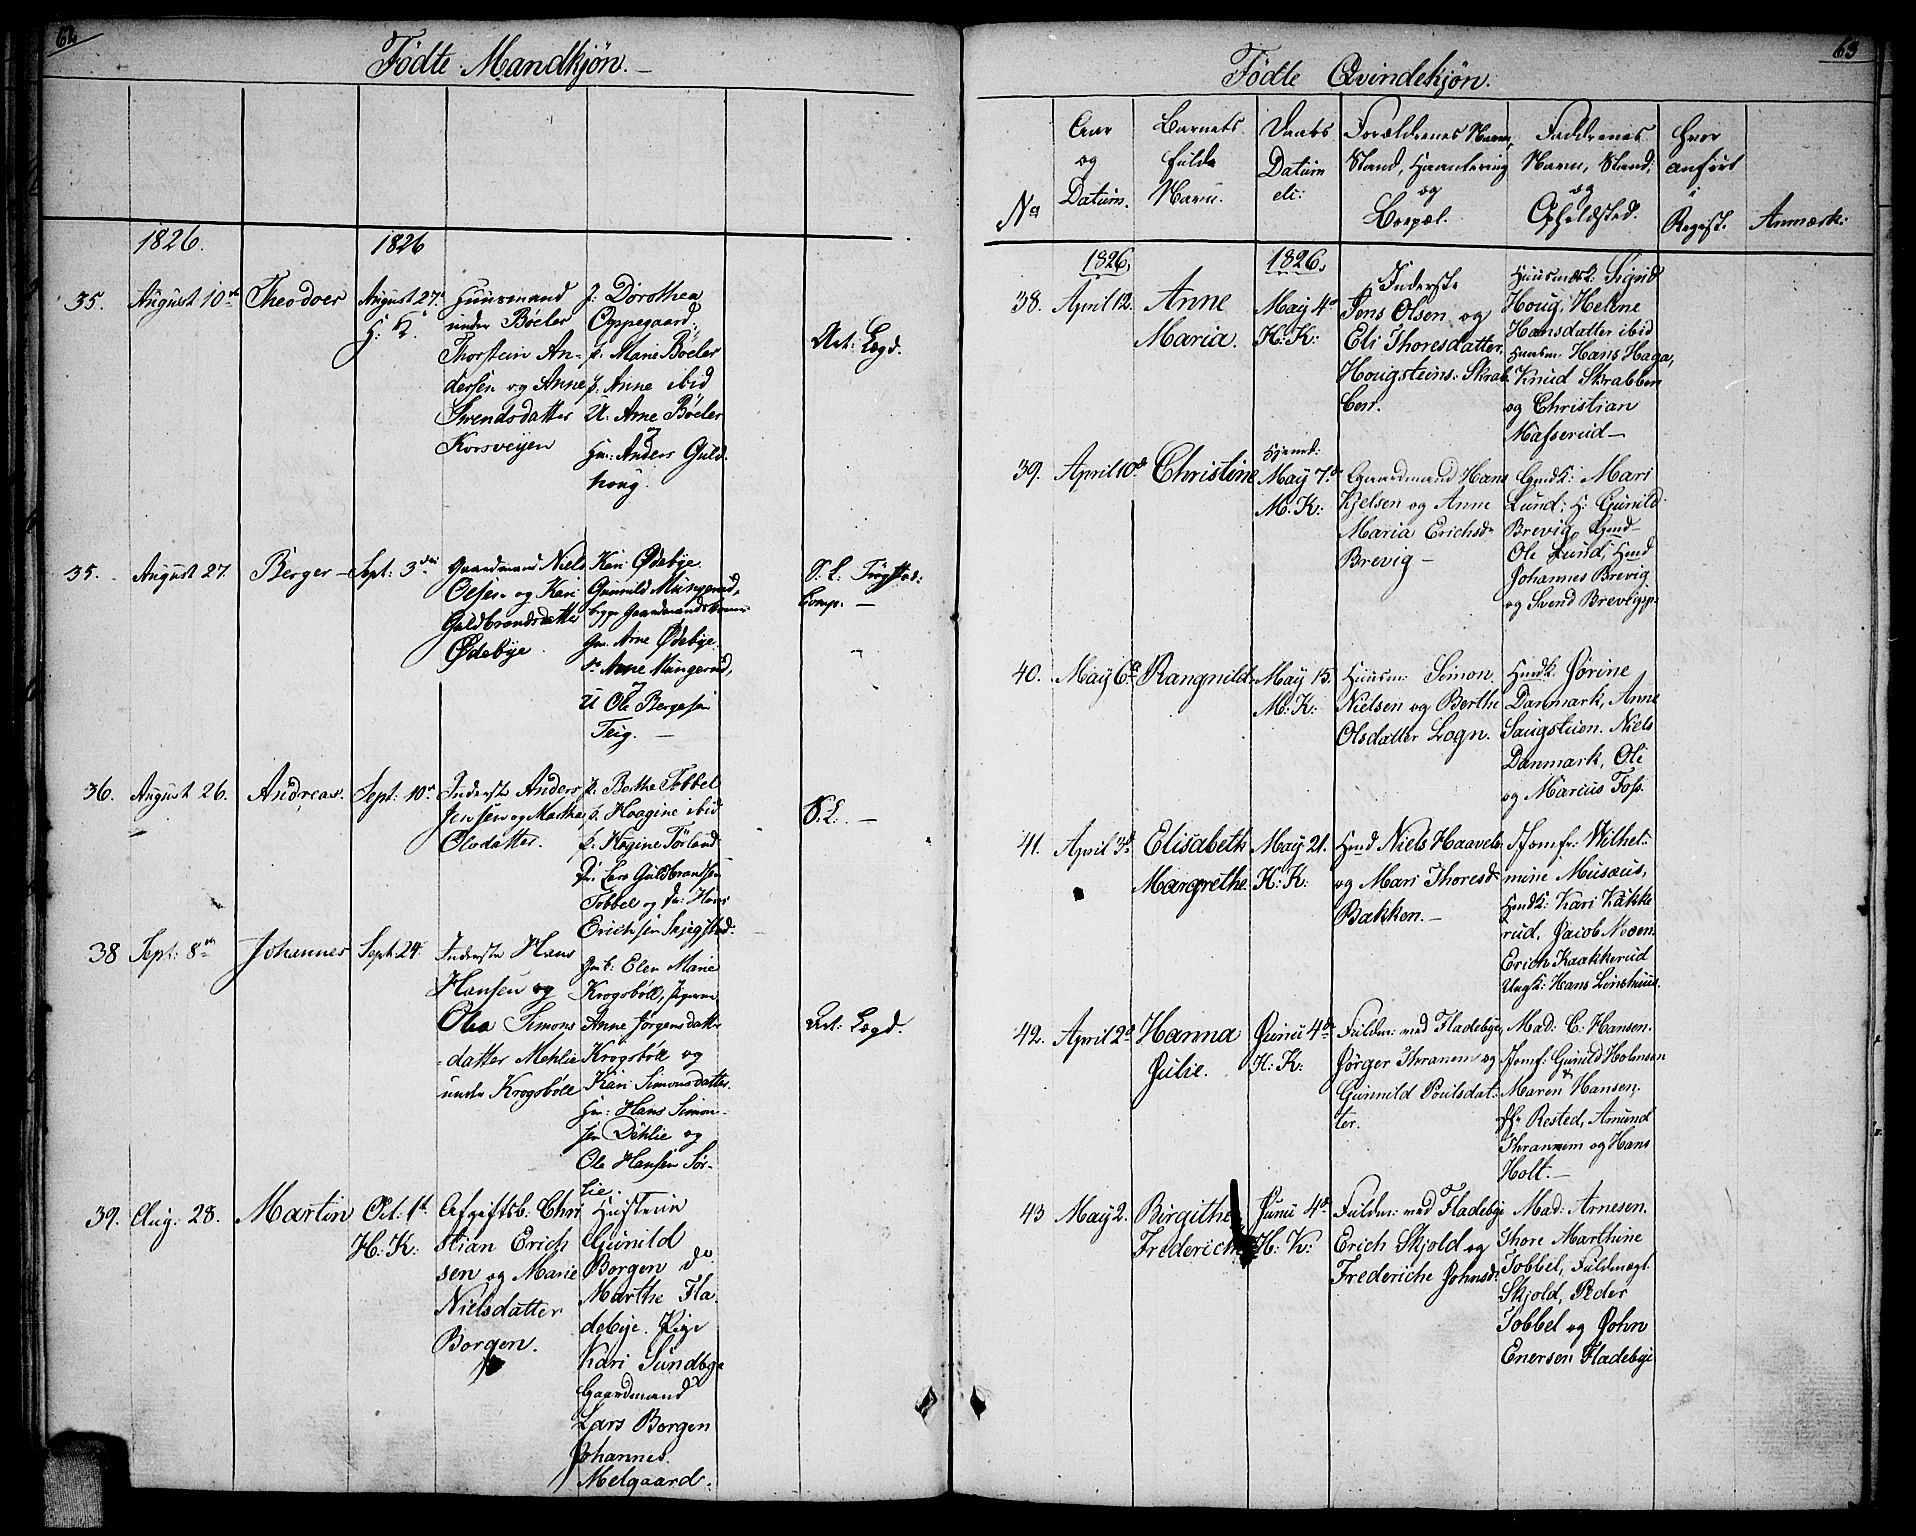 62
Födte Mandkjön.—
1826.
1826
35.
August 10de
Theodoer
August 27.
H: K
Huusmand
under Böeler
Thorstein An-
dersen og Anne
Svendsdatter
Korsveyen
p. Dorothea
Oppegaard.
p. Marie Böeler
p. Anne ibid
U: Arne Böeler
og
Hm: Anders Guld-
houg.
Act: Lægd.
35.
August 27.
Berger —
Sept: 3die
Gaardmand Niels
Olsen og Kari
Guldbrandsdatter
Ödebye
Kari Ödebye
Gunnild Mungerud,
begge Gaardmandskoner
Gm. Arne Ödebye
Anne Mungerud,
og
U Ole Bergesen
Teig. —
S: L: Trygstad:
Comp. —
36.
August 26.
Andreas.
Sept: 10de
Inderst Anders
Jensen og Marthe
Olsdatter.
p. Berthe Tobbel
p. Haagine ibid
p. Hagine Törland
Lars Guldbrandsen
Tobbel og Hans
Erichsen Skjegstad.
S: L: —
38
Sept: 8de
Johannes
Sept: 24.
Inderste Hans
Hansen og
Olea Simons
-datter Mehlie
under Krogsböll
Gmk: Elen Marie
Krogsböll, pigerne
Anne Jörgensdatter
Krogsböll og
Kari Simonsdatter
Hm: Hans Simon-
sen Dehlie og
Ole Hansen Sör-
lie.
Act: Lægd.
39.
Aug: 28.
Martin
Oct: 1st
H: K:
Afgiftsb: Chri
stian Erich
sen og Marie
Nielsdatter
Borgen.
Hustruen
Gunild
Borgen do
Marthe Fla
debye. Pige
Kari Sundbye
Gaardmand
Lars Borgen
Johannes
Melgaard.
63
Födte Qvindekjön.
No
Aar
og
Datum.
Barnets
fulde
Navn.
Daabs
Datum
etc:
Forældrenes Navn,
Stand, Haantering
og
Bopæl.
Faddrenes
Navn, Stand,
og
Opholdsted.
Hvor
anfört
i
Regist:
Anmærk:
1826,
1826,
38.
April 12.
Anne
Maria.
May 4de
H: K:
Inderste
Jens Olsen og
Eli Thoresdatter,
Hougsteins: Skrab
ben.
Huusmdsk: Sigrid
Houg, Helene
Hansdatter ibid
Huusm: Hans Haga,
Knud Skrabben
og Christian
Masserud —
39.
April 10de
Christine
Hjemd:
May 7de
M: K:
Gaardmand Hans
Kjelsen og Anne
Maria Erichsdr
Brevig —
Gmdk: Mari
Lund: H: Gunild
Brevig, Gmd
Ole Lund, Hmd
Johannes Brevig
og Svend Brevigsp:
40.
May 6te
Rangnild
May 15.
M: K:
Huusm: Simon
Nielsen og Berthe
Olsdatter Logn.
Hmdk. Jörine
Danmark, Anne
Saugstuen. Niels
Danmark, Oli
og Marius Foss.
41.
April 3de
Elisabeth
Margrethe
May 21.
H: K:
Hmd Niels Haavels
og Mari Thoresdr
Bakken. —
Jfomfr: Wilhel:
mine Musæus,
Hmdk: Kari Kakke
rud, Jacob Moen
Erich Kaakkerud
Ungk: Hans Linshuus.
42.
April 2d
Hanna
Julie.
Junii 4de
H: K:
Fuldm: ved Fladebye
Jörger Thranem og
Gunnild Poulsdat:
ter.
Mad. C: Hansen.
Jfomf: Gunild Holmsen
Maren Hansen,
Hr Rested, Amund
Thranem og Hans
Holt. —
43
May 2.
Birgithe
Frederiche
Junii 4de
H: K:
Fuldm: ved Fladebye
Erich Skjold og
Frederiche Johnsd:
Mad: Arnesen.
Thore Marthine
Tobbel, Fuldmægt.
Skjold, Peder
Tobbel og John
Enersen Fladebye